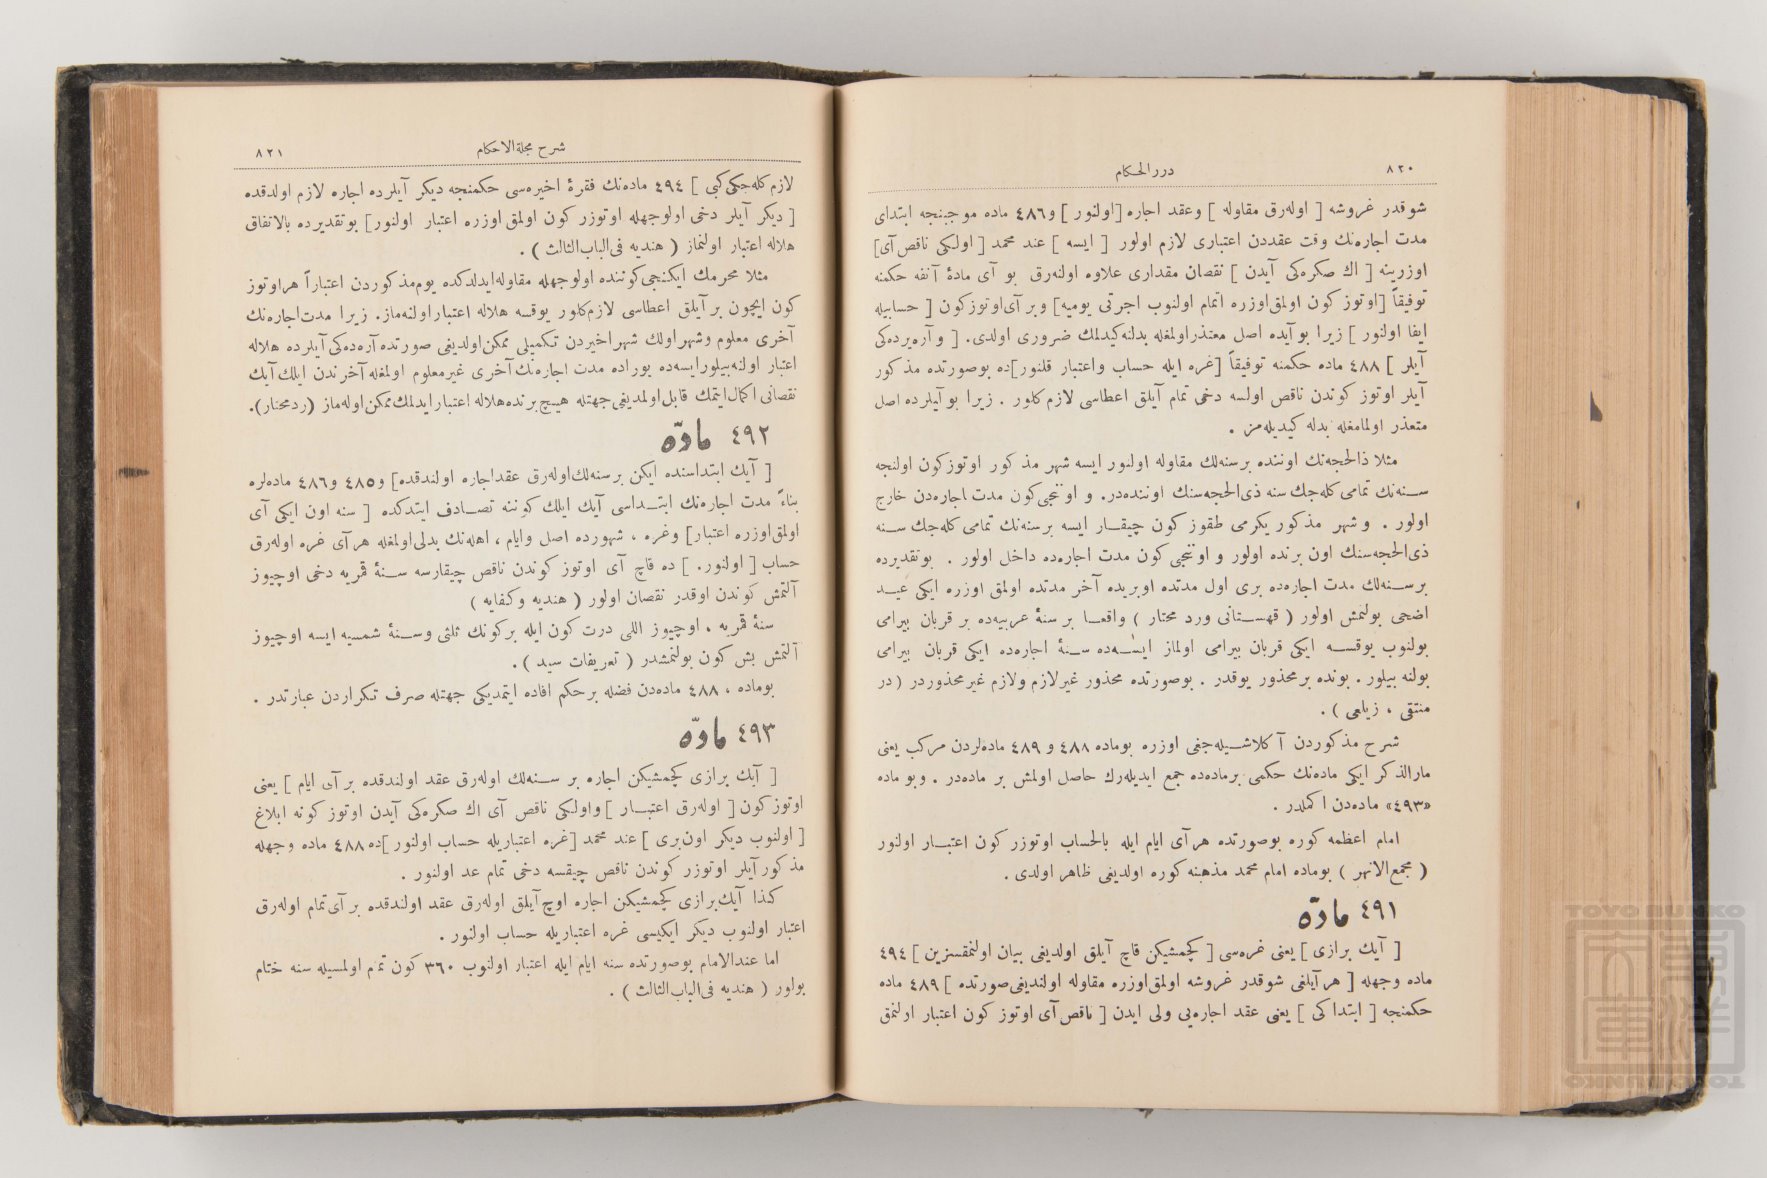 ٨٢٠
دررالحكام
شوقدر غروشه [ اوله‌رق مقاوله ] وعقد اجاره [اولنور ] و٤٨٦ ماده موجبنجه ابتدای
مدت اجاره‌نك وقت عقددن اعتباری لازم اولور [ ايسه ] عند محمد [ اولكی ناقص آی]
اوزرينه [ اك صكره‌كی آيدن ] نقصان مقداری علاوه اولنه‌رق بو آی مادۀ آنفه حكمنه
توفيقاً [اوتوز كون اولمق‌اوزره اتمام اولنوب اجرتی يوميه] وبر آی‌اوتوزكون [ حسابيله
ايفا اولنور ] زيرا بوآيده اصل متعذراولمغله بدلنه‌كيدلمك ضروری اولدی. [ و آره‌يرده‌كی
آيلر ] ٤٨٨ ماده حكمنه توفيقاً [غره ايله حساب واعتبار قلنور]ده بوصورتده مذكور
آيلر اوتوز كوندن ناقص اولسه دخی تمام آيلق اعطاسی لازم‌كلور . زيرا بوآيلرده اصل
متعذر اولمامغله بدله كيديله‌مز .
مثلا ذالحجه‌نك اوننده برسنه‌لك مقاوله اولنور ايسه شهر مذكور اوتوزكون اولنجه
سنه‌نك تمامی كله‌جك سنه ذی‌الحجه‌سنك اوننده‌در. و اوننجی‌كون مدت اجاره‌دن خارج
اولور . وشهر مذكور يكرمی طقوز كون چيقار ايسه برسنه‌نك تمامی كله‌جك سنه
ذی‌الحجه‌سنك اون برنده اولور و اوننجی كون مدت اجاره‌ده داخل اولور . بوتقديرده
برسنه‌لك مدت اجاره‌ده بری اول مدتده اوبريده آخر مدتده اولمق اوزره ايكی عيد
اضحی بولنمش اولور ( قهستانی ورد محتار ) واقعا بر سنۀ عربيه‌ده بر قربان بيرامی
بولنوب يوقسه ايكی قربان بيرامی اولماز ايسه‌ده سنۀ اجاره‌ده ايكی قربان بيرامی
بولنه بيلور . بونده برمحذور يوقدر . بوصورتده محذور غيرلازم ولازم غيرمحذوردر (در
منتقی ، زيلعی ) .
شرح مذكوردن آكلاشيله‌جغی اوزره بوماده ٤٨٨ و ٤٨٩ ماده‌لردن مركب يعنی
مارالذكر ايكی ماده‌نك حكمی برماده‌ده جمع ايديله‌رك حاصل اولمش بر ماده‌در . وبو ماده
«٤٩٣» ماده‌دن اكملدر .
امام اعظمه كوره بوصورتده هرآی ايام ايله بالحساب اوتوزر كون اعتبار اولنور
( مجمع‌الانهر ) بوماده امام محمد مذهبنه كوره اولديغی ظاهر اولدی .
٤٩١ مادّه
[ آيك برازی ] يعنی غره‌سی [ كچمشيكن قاچ آيلق اولديغی بيان اولنمقسزين ] ٤٩٤
ماده وجهله [ هرآيلغی شوقدر غروشه اولمق‌اوزره مقاوله اولنديغی‌صورتده ] ٤٨٩ ماده
حكمنجه [ ابتداكی ] يعنی عقد اجاره‌يی ولی ايدن [ ناقص‌آی اوتوز كون اعتبار اولنمق
شرح مجلةالاحكام
٨٢١
لازم‌كله‌جكی‌كبی ] ٤٩٤ ماده‌نك فقرۀ اخيره‌سی حكمنجه ديكر آيلرده اجاره لازم اولدقده
[ ديكر آيلر دخی اولوجهله اوتوزر كون اولمق اوزره اعتبار اولنور] بوتقديرده بالاتفاق
هلاله اعتبار اولنماز ( هنديه فی‌الباب‌الثالث ) .
مثلا محرمك ايكنجی‌كوننده اولوجهله مقاوله‌ايدلدكده يوم‌مذكوردن اعتباراً هراوتوز
كون ايچون برآيلق اعطاسی لازم‌كلور يوقسه هلاله اعتبار اولنه‌ماز. زيرا مدت‌اجاره‌نك
آخری معلوم وشهراولك شهراخيردن تكميلی ممكن‌اولديغی صورتده آره‌ده‌كی‌آيلرده هلاله
اعتبار اولنه‌بيلورايسه‌ده بوراده مدت اجاره‌نك‌آخری غيرمعلوم اولمغله‌آخرندن ايلك‌آيك
نقصانی اكمال‌ايتمك قابل‌اولمديغی جهتله هيچ‌برنده‌هلاله اعتبارايدلمك‌ممكن‌اوله‌ماز (ردمحتار).
٤٩٢ مادّه
[ آيك ابتداسنده ايكن برسنه‌لك‌اوله‌رق عقداجاره اولندقده] و٤٨٥ و٤٨٦ ماده‌لره
بناءً مدت اجاره‌نك ابتداسی آيك ايلك كوننه تصادف ايتدكده [ سنه اون ايكی آی
اولمق‌اوزره اعتبار] وغره ، شهورده اصل وايام ، اهله‌نك بدلی‌اولمغله هرآی غره اوله‌رق
حساب [ اولنور. ] ده قاچ آی اوتوز كوندن ناقص چيقارسه سنۀ قمريه دخی اوچيوز
آلتمش كوندن اوقدر نقصان اولور ( هنديه وكفايه )
سنۀ قمريه ، اوچيوز اللی درت كون ايله بركونك ثلثی وسنۀ شمسيه ايسه اوچيوز
آلتمش بش كون بولنمشدر ( تعريفات سيد ) .
بوماده ، ٤٨٨ ماده‌دن فضله برحكم افاده ايتمديكی جهتله صرف تكراردن عبارتدر .
٤٩٣ مادّه
[ آيك برازی كچمشيكن اجاره بر سنه‌لك اوله‌رق عقد اولندقده بر آی ايام ] يعنی
اوتوز كون [ اوله‌رق اعتبار ] واولكی ناقص آی اك صكره‌كی آيدن اوتوز كونه ابلاغ
[ اولنوب ديكر اون‌بری ] عند محمد [غره اعتباريله حساب اولنور ]ده ٤٨٨ ماده وجهله
مذكورآيلر اوتوزر كوندن ناقص چيقسه دخی تمام عد اولنور .
كذا آيك‌برازی كچمشيكن اجاره اوچ‌آيلق اوله‌رق عقد اولندقده برآی‌تمام اوله‌رق
اعتبار اولنوب ديكر ايكيسی غره اعتباريله حساب اولنور .
اما عندالامام بوصورتده سنه ايام ايله اعتبار اولنوب ٣٦٠ كون تمام اولمسيله سنه ختام
بولور ( هنديه فی‌الباب‌الثالث ) .
TOYO BUNKO